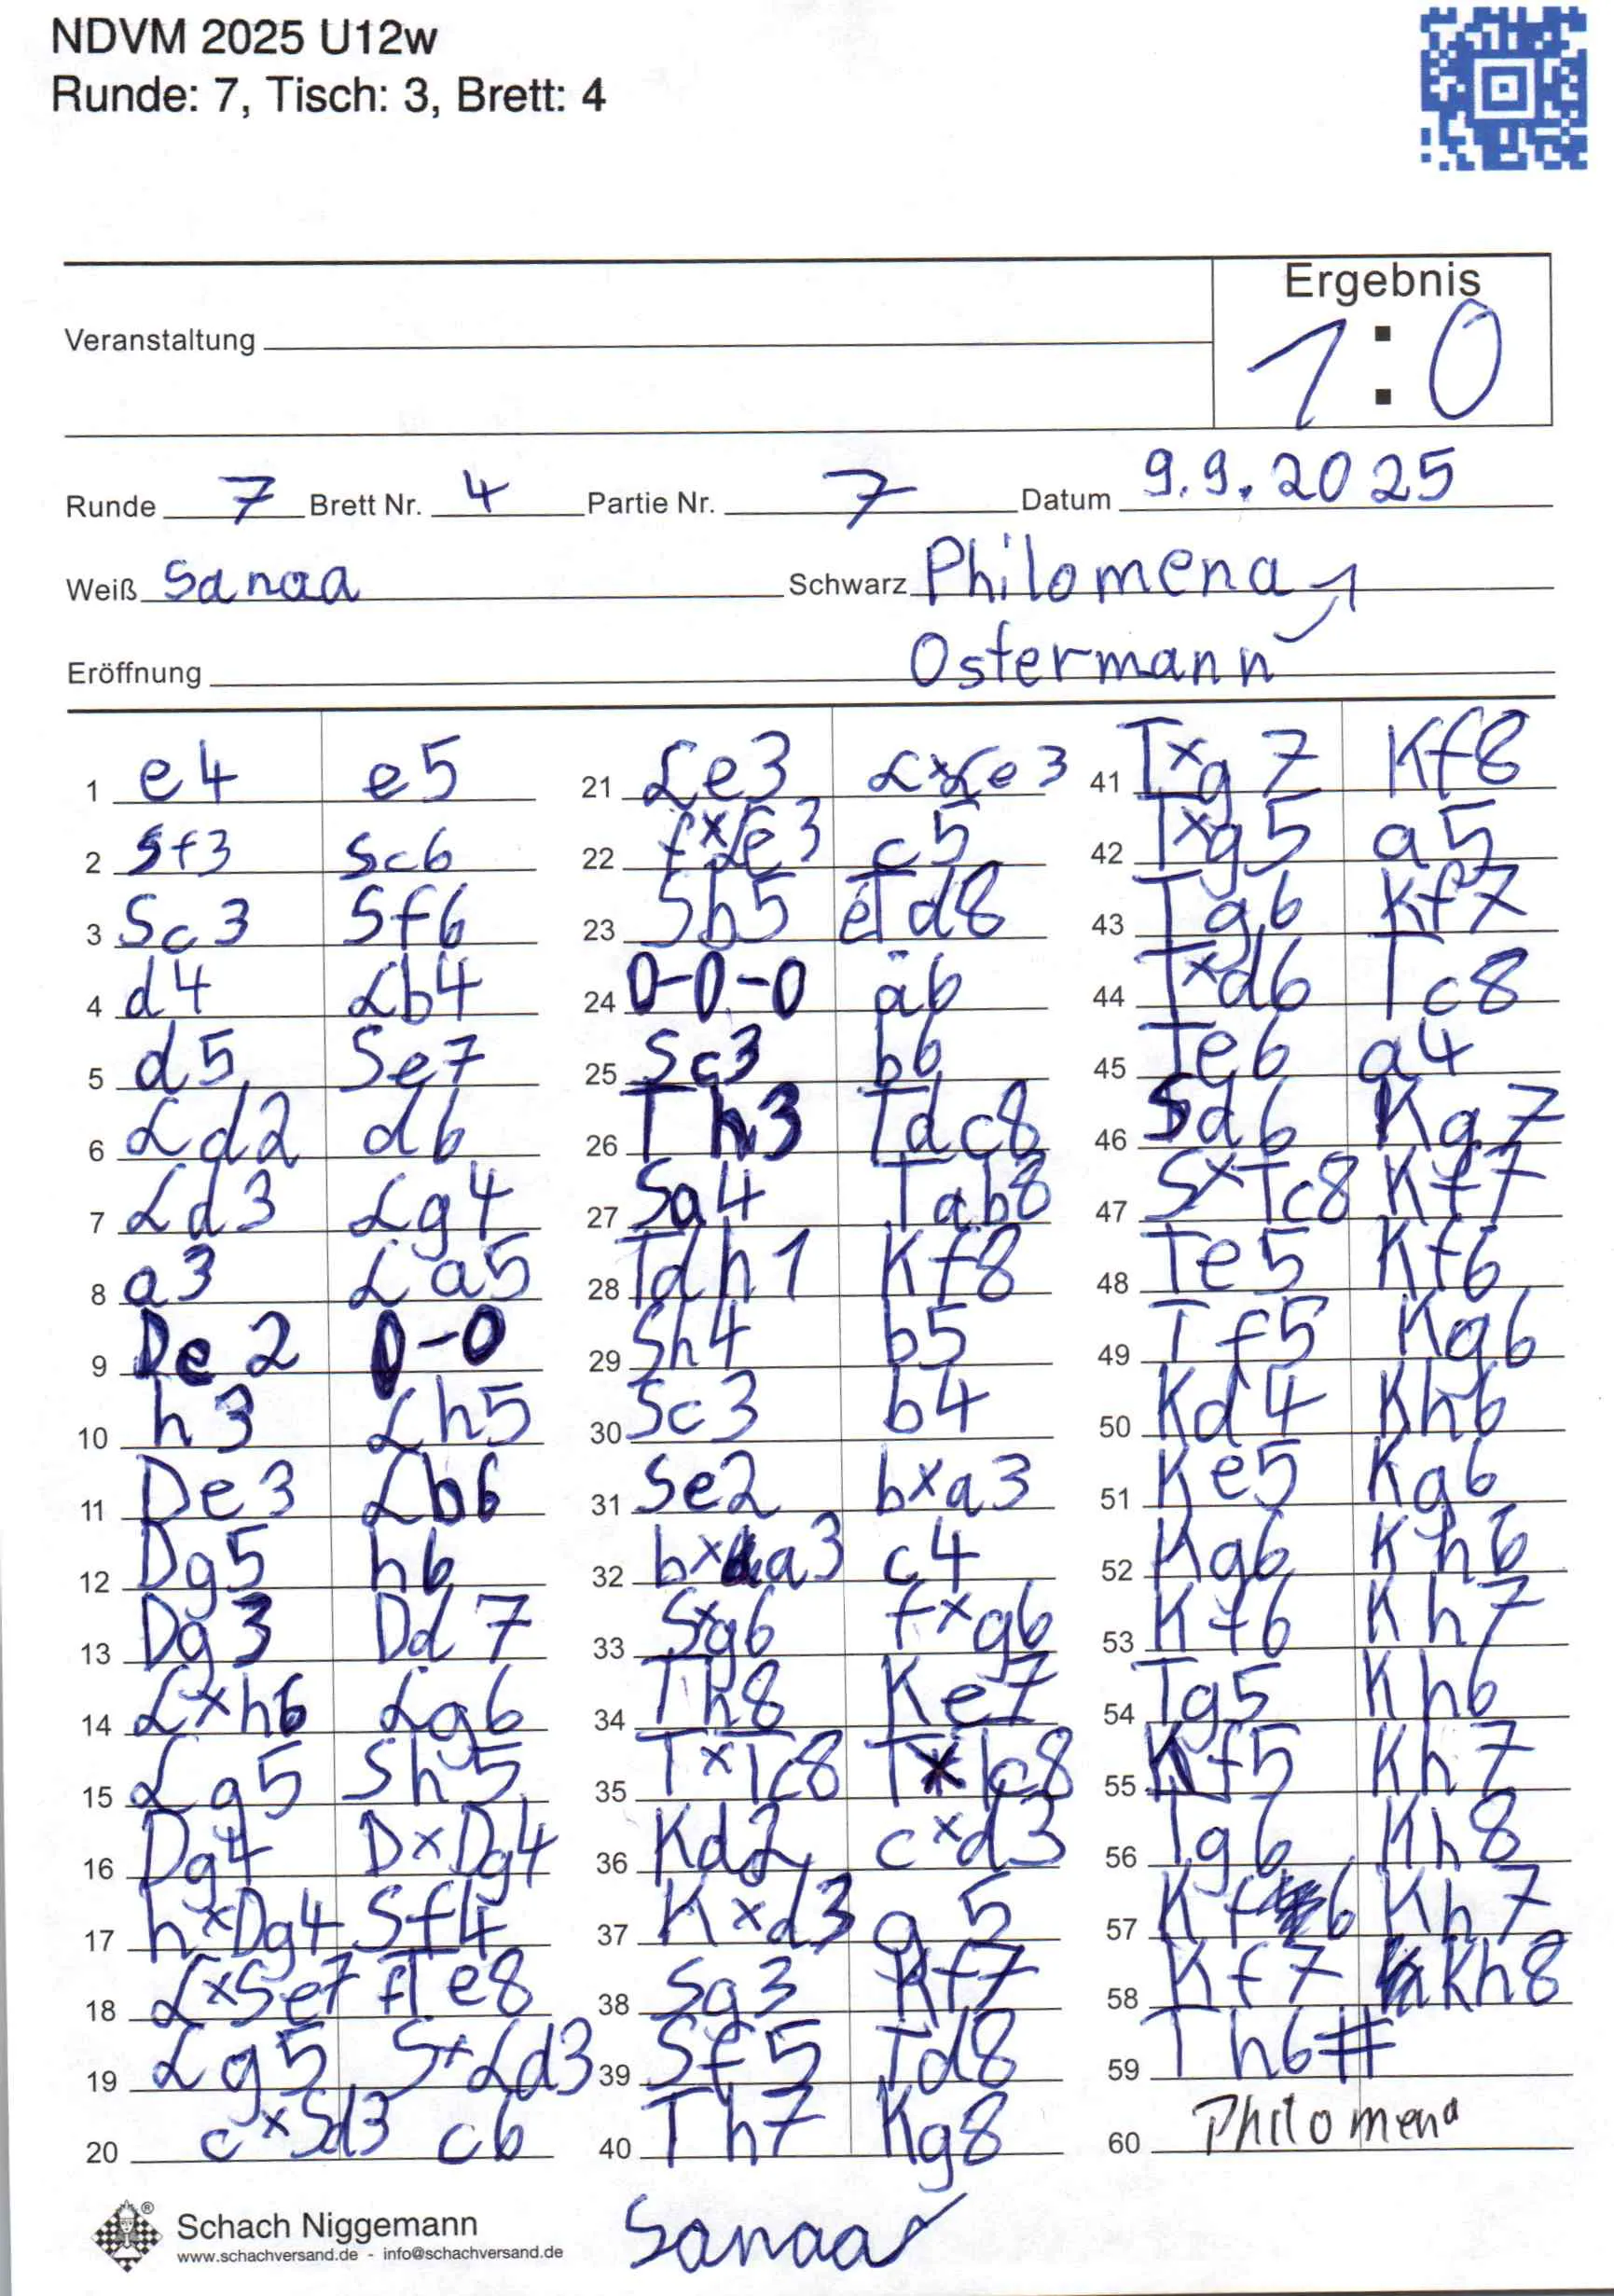 NDVM 2025 U12w
Runde: 7, Tisch: 3, Brett: 4
Ergebnis
1:0
Veranstaltung
Runde 7 Brett Nr. 4 Partie Nr. 7 Datum 9.9.2025
Weiß Sanaa Schwarz Philomena
Ostermann
Eröffnung
1 e4 e5
2 Sf3 Sc6
3 Sc3 Sf6
4 d4 Lb4
5 d5 Se7
6 Ld2 d6
7 Ld3 Lg4
8 a3 La5
9 De2 0-0
10 h3 Lh5
11 De3 Lb6
12 Dg5 h6
13 Dg3 Dd7
14 Lxh6 Lg6
15 Lg5 Sh5
16 Dg4 DxDg4
17 hxDg4 Sf4
18 LxSe7 fTe8
19 Lg5 SxLd3
20 cxSd3 c6
21 Le3 LxLe3
22 fxLe3 c5
23 Sb5 eTd8
24 0-0-0 a6
25 Sc3 b6
26 Th3 Tdc8
27 Sa4 Tab8
28 Tdh1 Kf8
29 Sh4 b5
30 Sc3 b4
31 Se2 bxa3
32 bxa3 c4
33 Sxg6 fxg6
34 Th8 Ke7
35 TxTc8 TxTc8
36 Kd2 cxd3
37 Kxd3 g5
38 Sg3 Kf7
39 Sf5 Td8
40 Th7 Kg8
41 Txg7 Kf8
42 Txg5 a5
43 Tg6 Kf7
44 Txd6 Tc8
45 Te6 a4
46 Sd6 Kg7
47 SxTc8 Kf7
48 Te5 Kf6
49 Tf5 Kg6
50 Kd4 Kh6
51 Ke5 Kg6
52 Kg6 Kh6
53 Kf6 Kh7
54 Tg5 Kh6
55 Kf5 Kh7
56 Tg6 Kh8
57 Kf6 Kh7
58 Kf7 Kh8
59 Th6#
60 Philomena
Schach Niggemann
www.schachversand.de - info@schachversand.de
Sanaa